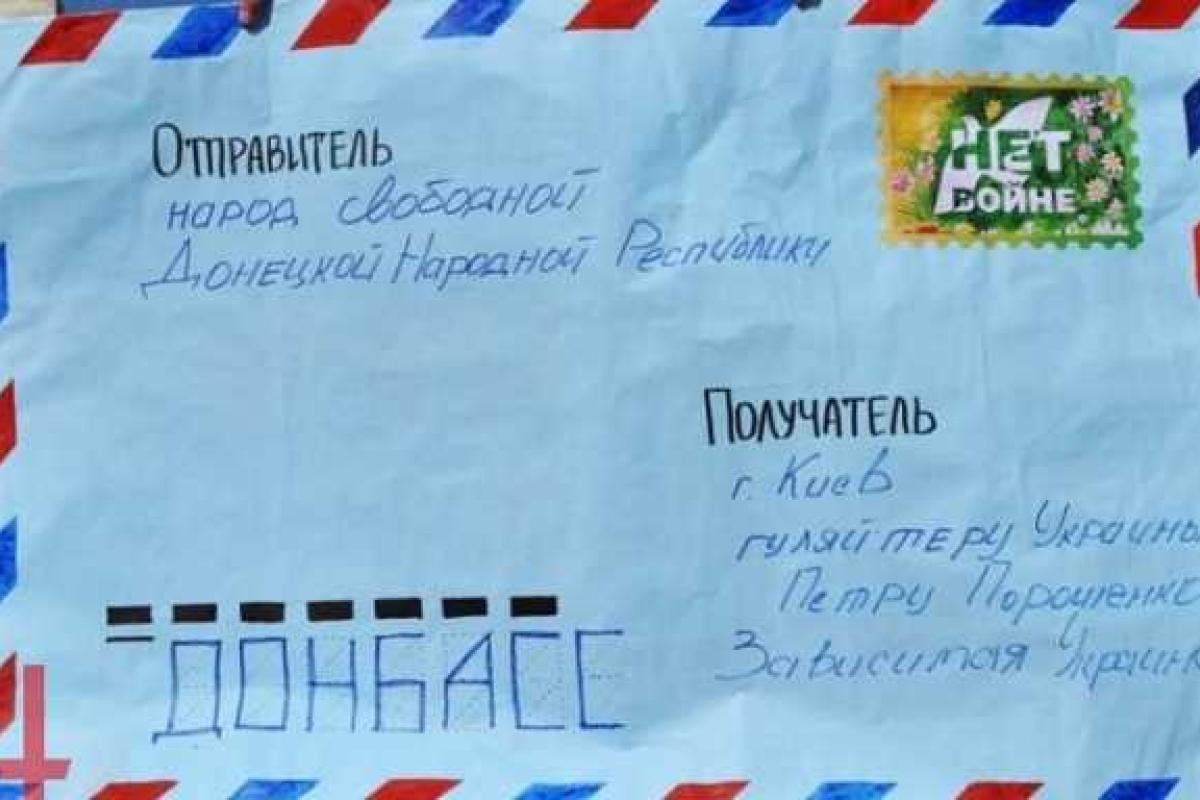 Отправитель
народ свободной
Донецкой Народной Республики
НЕТ
ВОЙНЕ
Получатель
г. Киев
гуляйтеру Украины
Петру Порошенко
Зависимая Украина
ДОНБАСС
4